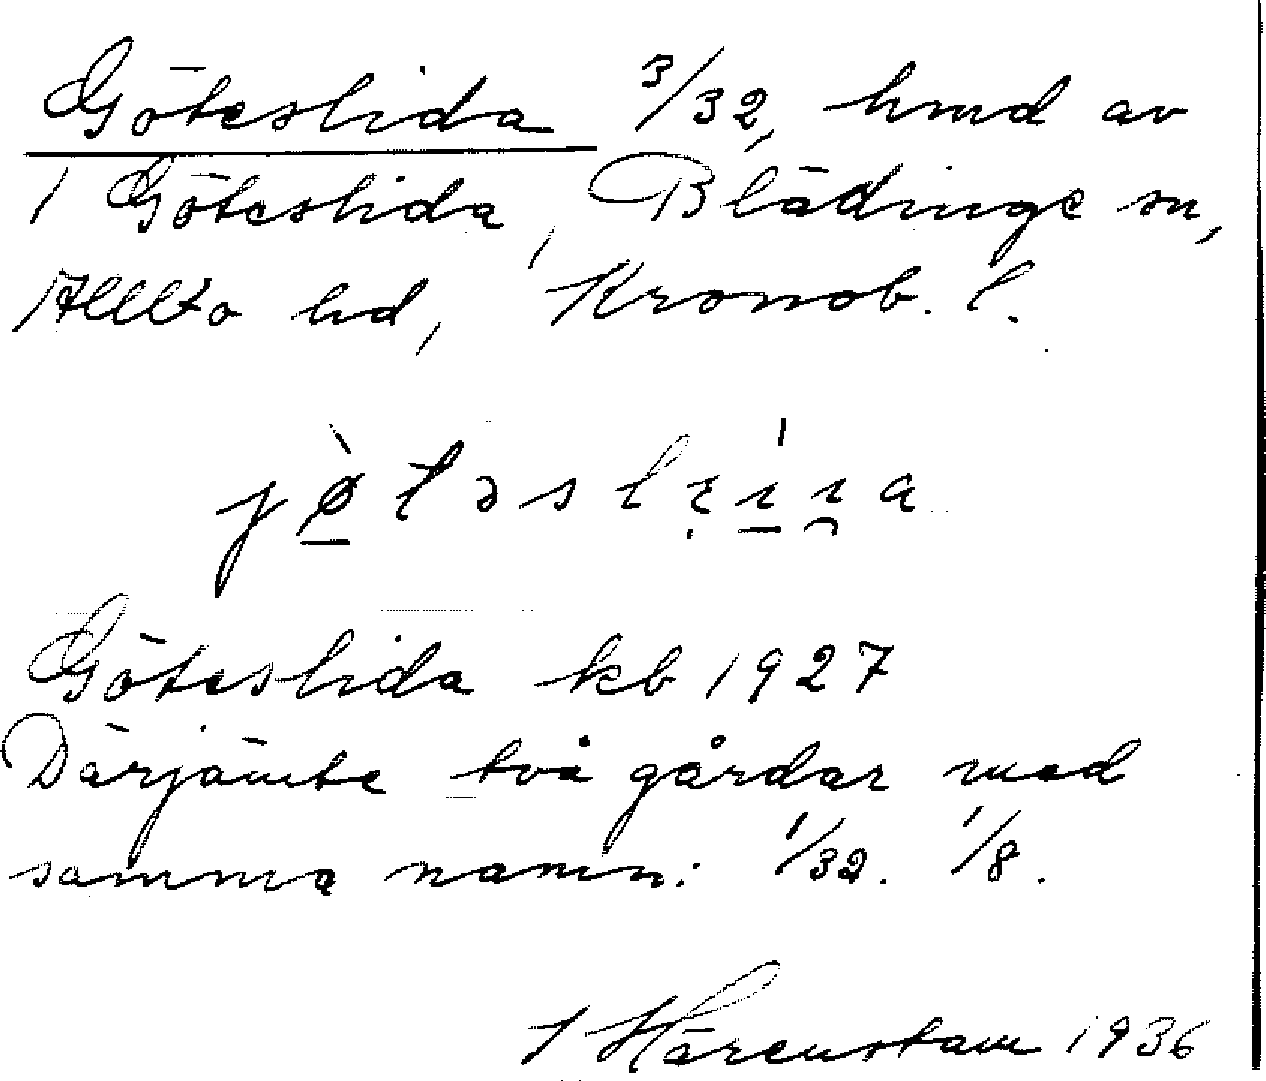 Göteslida 3/32, hmd av
1 Göteslida, Blädinge sn,
Allbo hd, Kronob. l.
Göteslida kb 1927
Därjämte två gårdar med
samma namn: 1/32. 1/8.
I Härenstam 1936